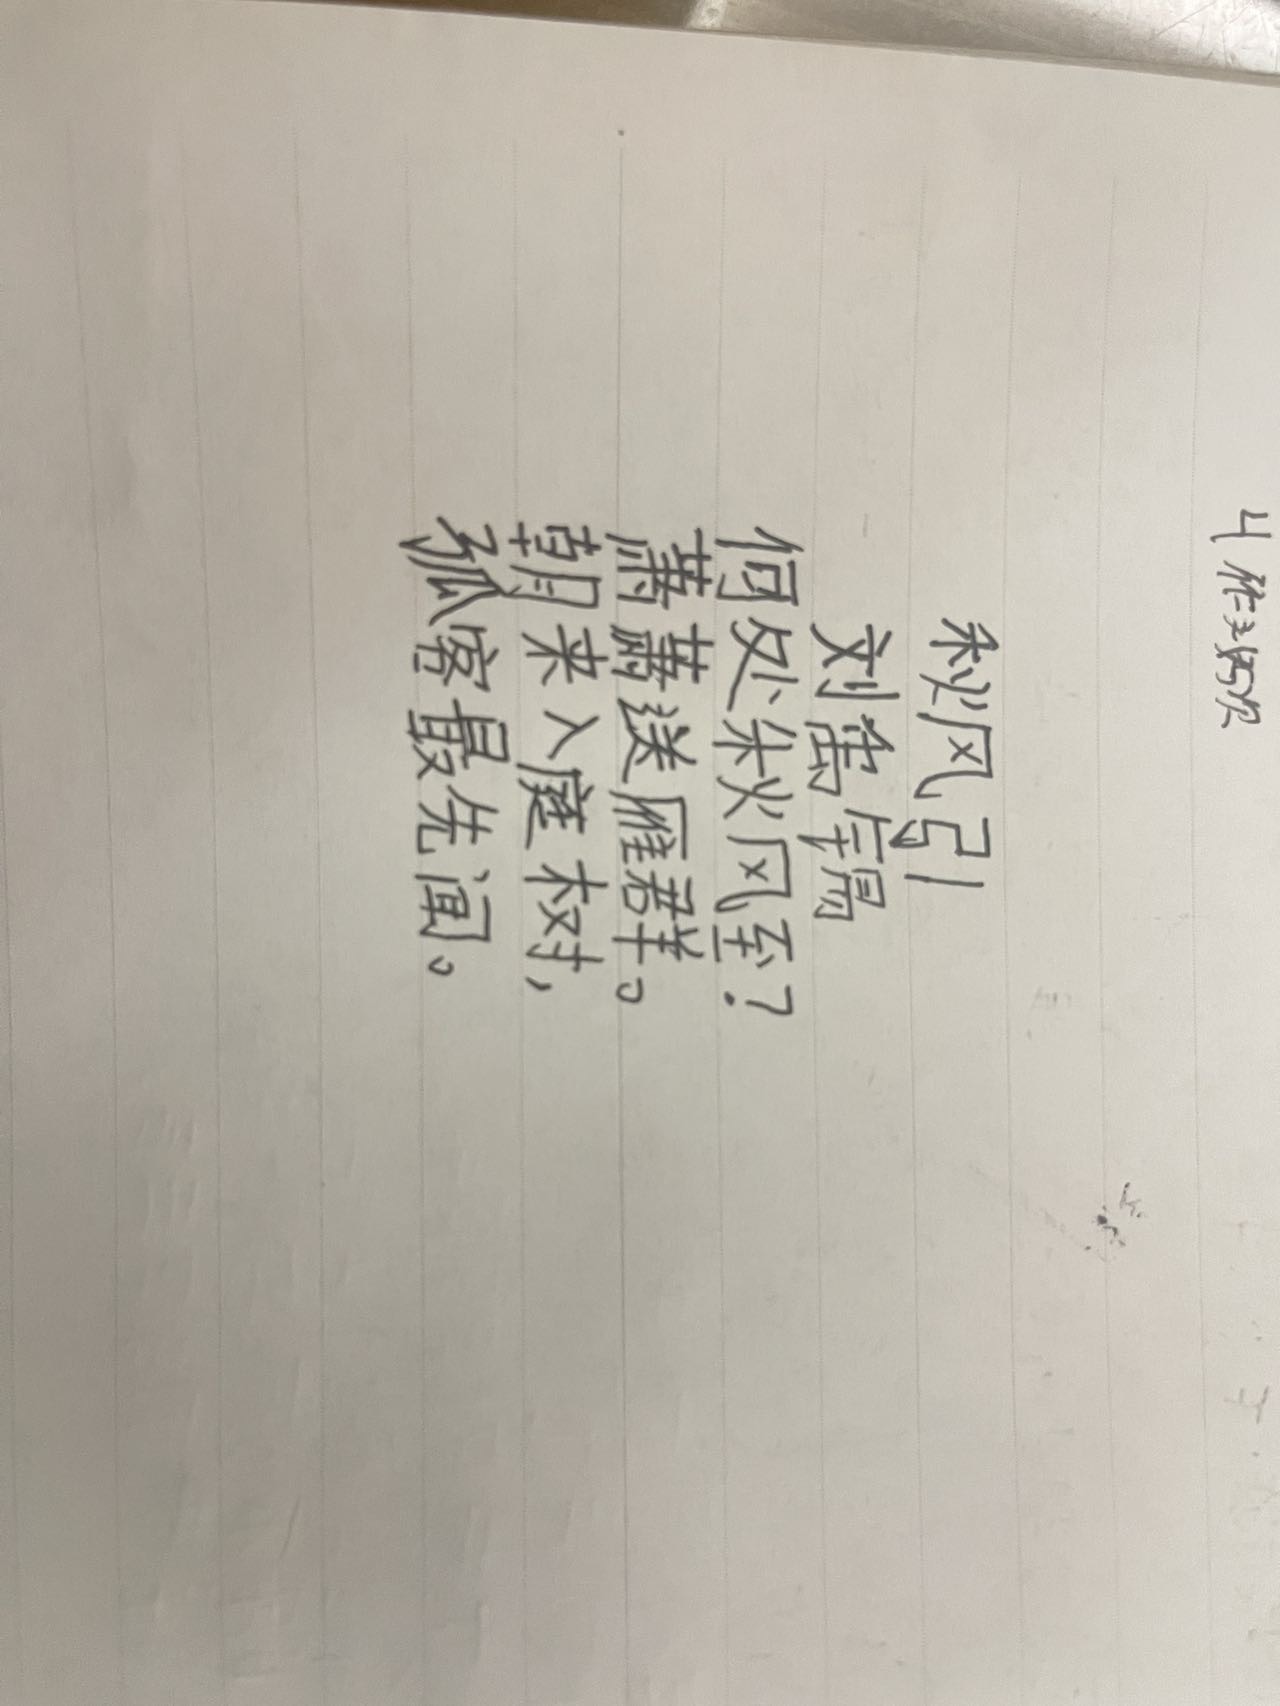 秋风引
刘禹锡
何处秋风至？
萧萧送雁群。
朝来入庭树，
孤客最先闻。